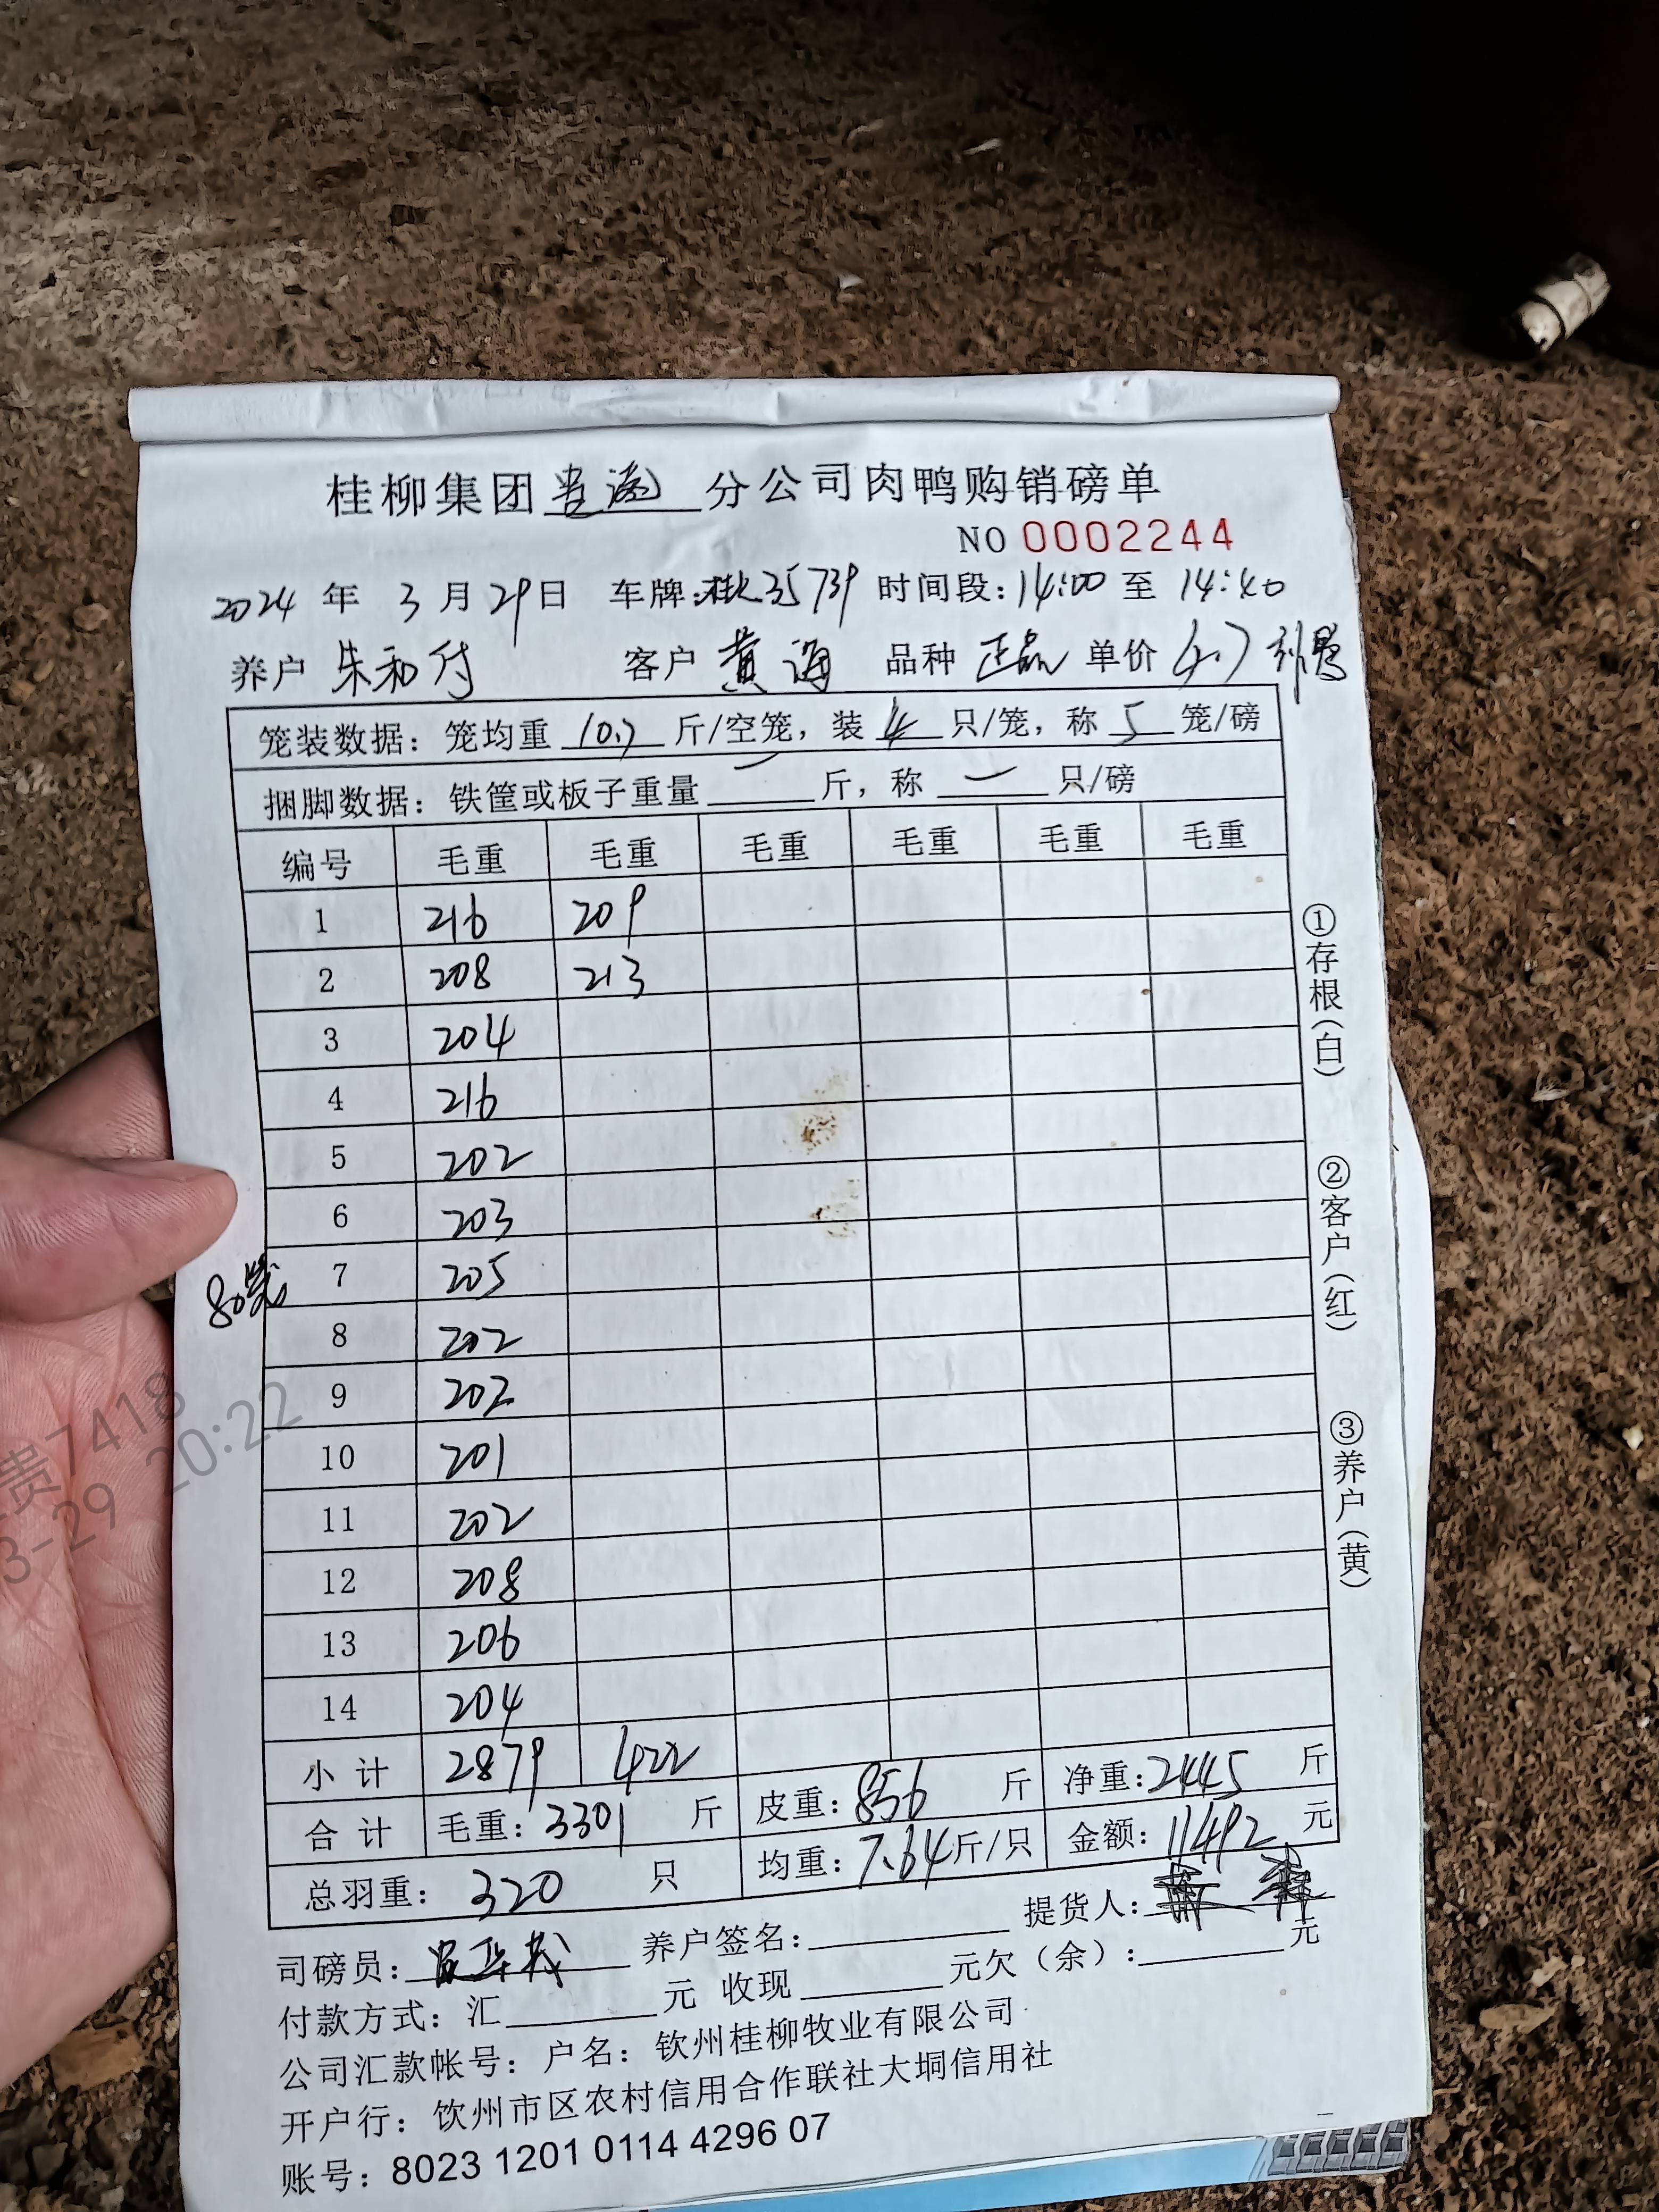 桂柳集团 贵港 分公司肉鸭购销磅单
NO 0002244
2024 年 3 月 29 日 车牌: 桂 35739 时间段: 14:00 至 14:40
养户 朱和付 客户 黄海 品种 正品 单价 4.7
笼装数据: 笼均重 10.7 斤/空笼, 装 4 只/笼, 称 5 笼/磅
捆脚数据: 铁筐或板子重量 — 斤, 称 — 只/磅
编号 毛重 毛重 毛重 毛重 毛重 毛重
1 216 209
2 208 213
3 204
4 216
5 202
6 203
80笼
7 205
8 202
9 202
10 201
11 202
12 208
13 206
14 204
小计 2879 422
合计 毛重: 3301 斤 皮重: 856 斤 净重: 2445 斤
总羽重: 320 只 均重: 7.64 斤/只 金额: 11492 元
司磅员: 养户签名: 提货人:
付款方式: 汇 元 收现 元欠(余): 元
公司汇款帐号: 户名: 钦州桂柳牧业有限公司
开户行: 钦州市区农村信用合作联社大垌信用社
账号: 8023 1201 0114 4296 07
①存根(白)
②客户(红)
③养户(黄)
贵7418
3-29 20:22